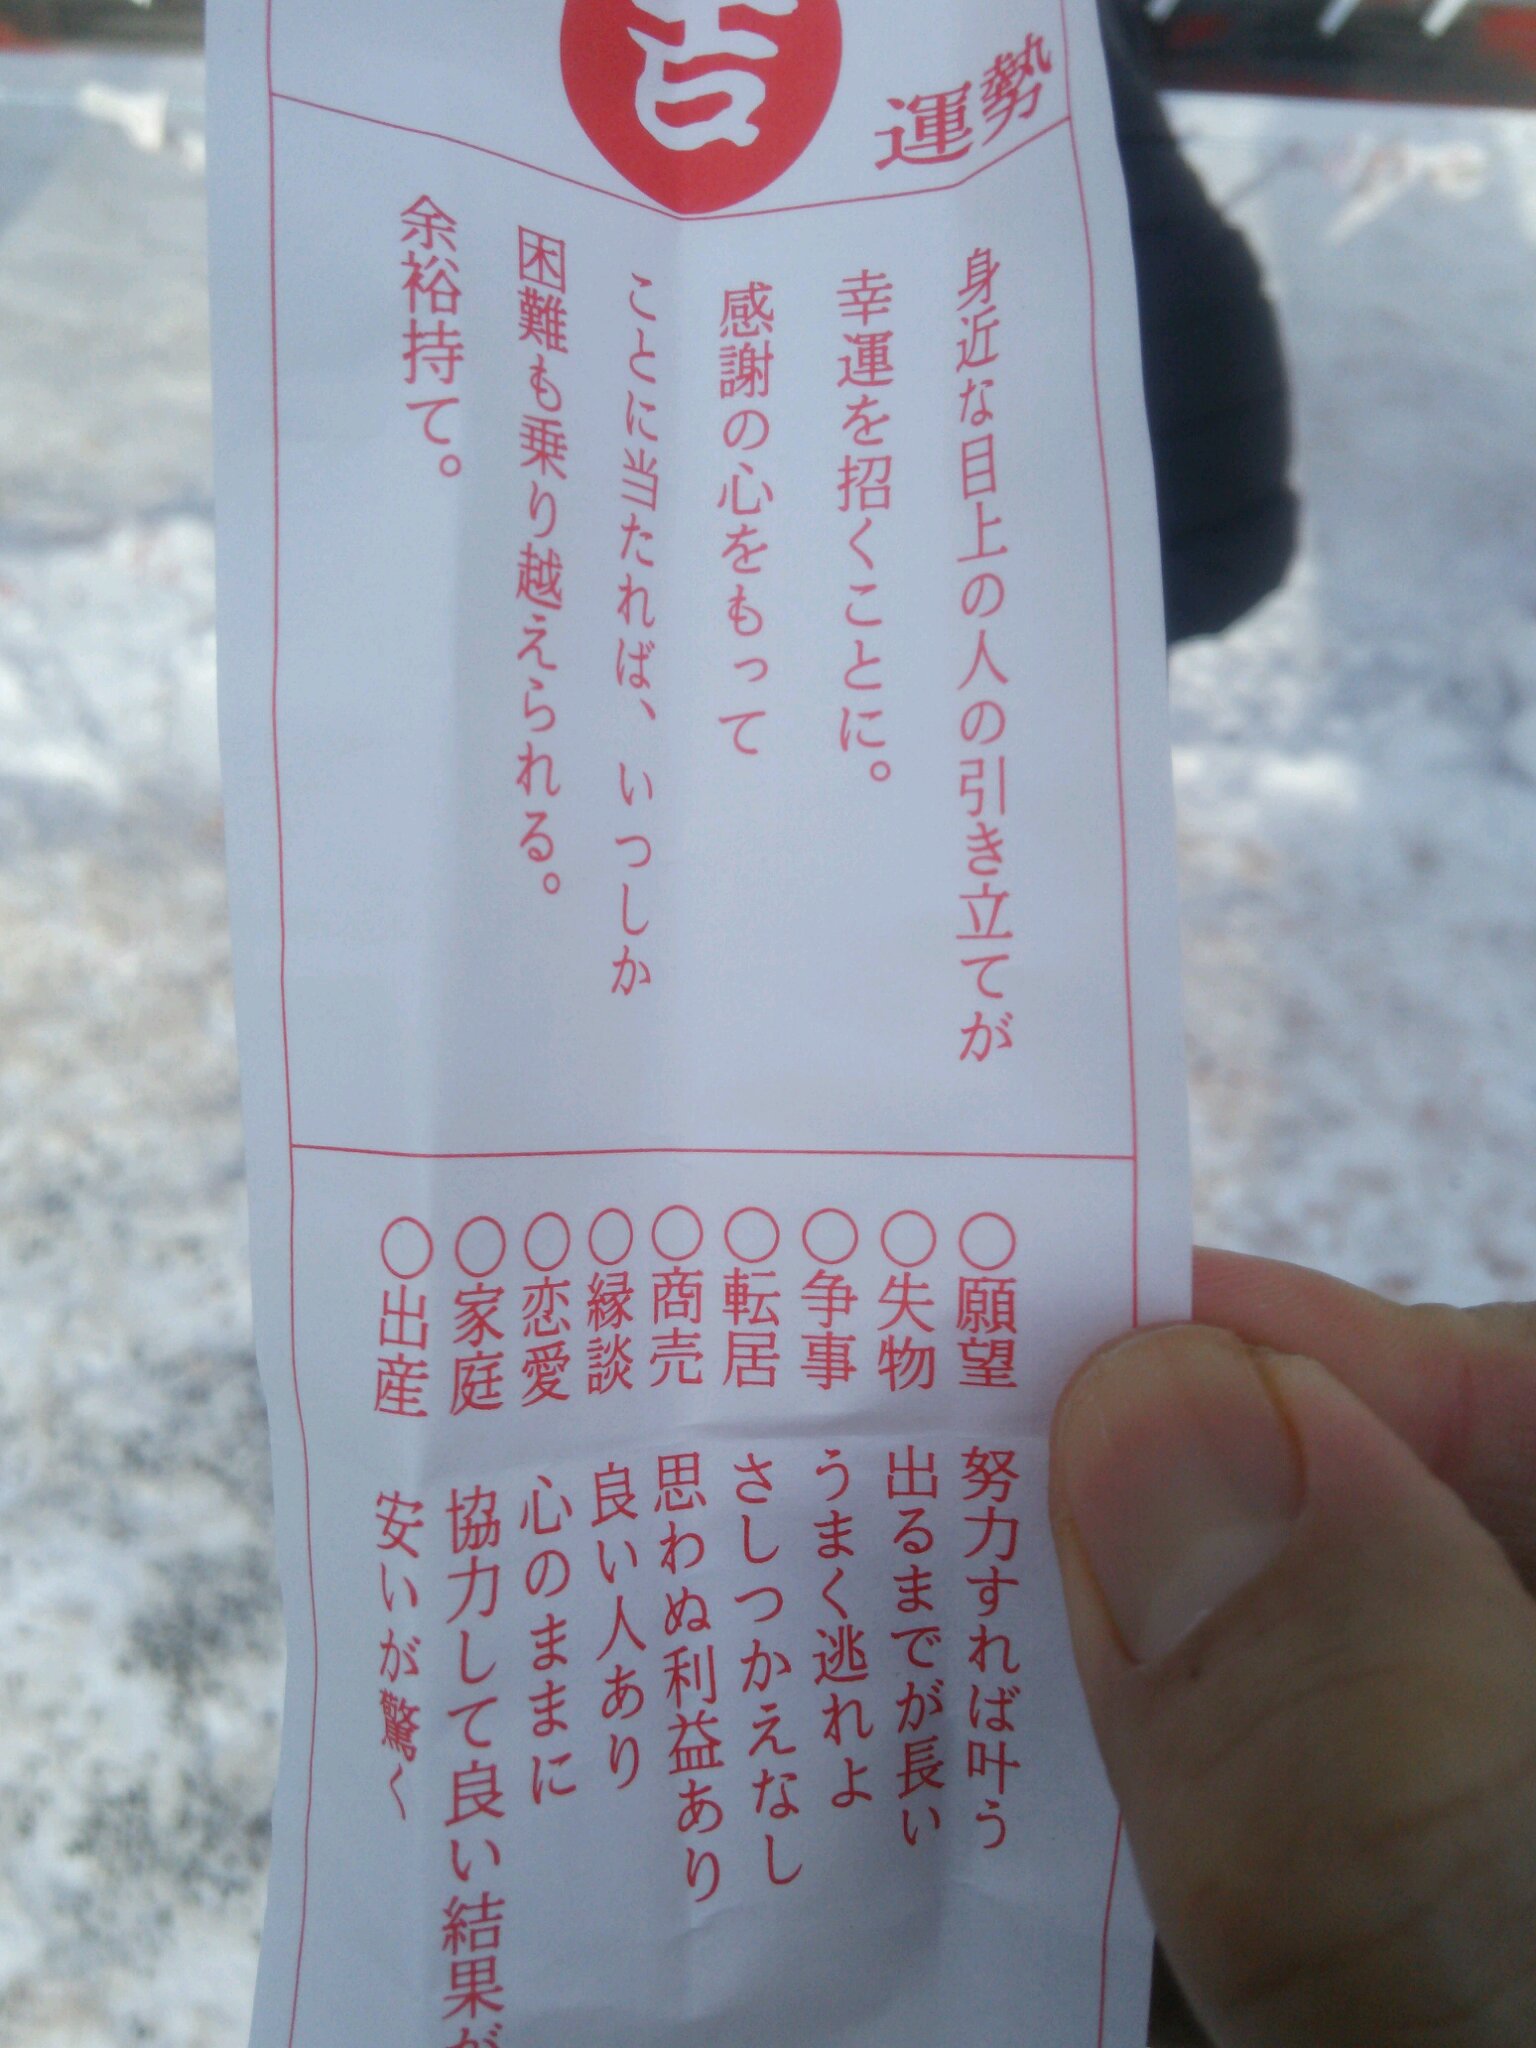 吉
運勢
身近な目上の人の引き立てが
幸運を招くことに。
感謝の心をもって
ことに当たれば、いつしか
困難も乗り越えられる。
余裕持て。
○願望 努力すれば叶う
○失物 出るまでが長い
○争事 うまく逃れよ
○転居 さしつかえなし
○商売 思わぬ利益あり
○縁談 良い人あり
○恋愛 心のままに
○家庭 協力して良い結果が
○出産 安いが驚く